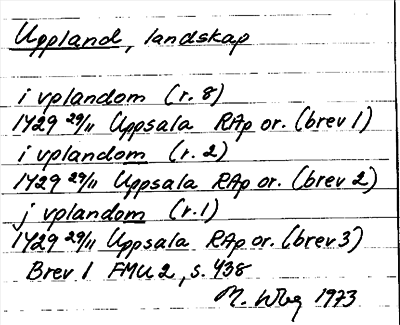 Uppland, landskap
i vplandom (r. 8)
1429 29/11 Uppsala RAp or. (brev 1)
i vplandom (r. 2)
1429 29/11 Uppsala RAp or. (brev 2)
j vplandom (r. 1)
1429 29/11 Uppsala RAp or. (brev 3)
Brev 1 FMU 2, s. 438
M. Wbg 1973